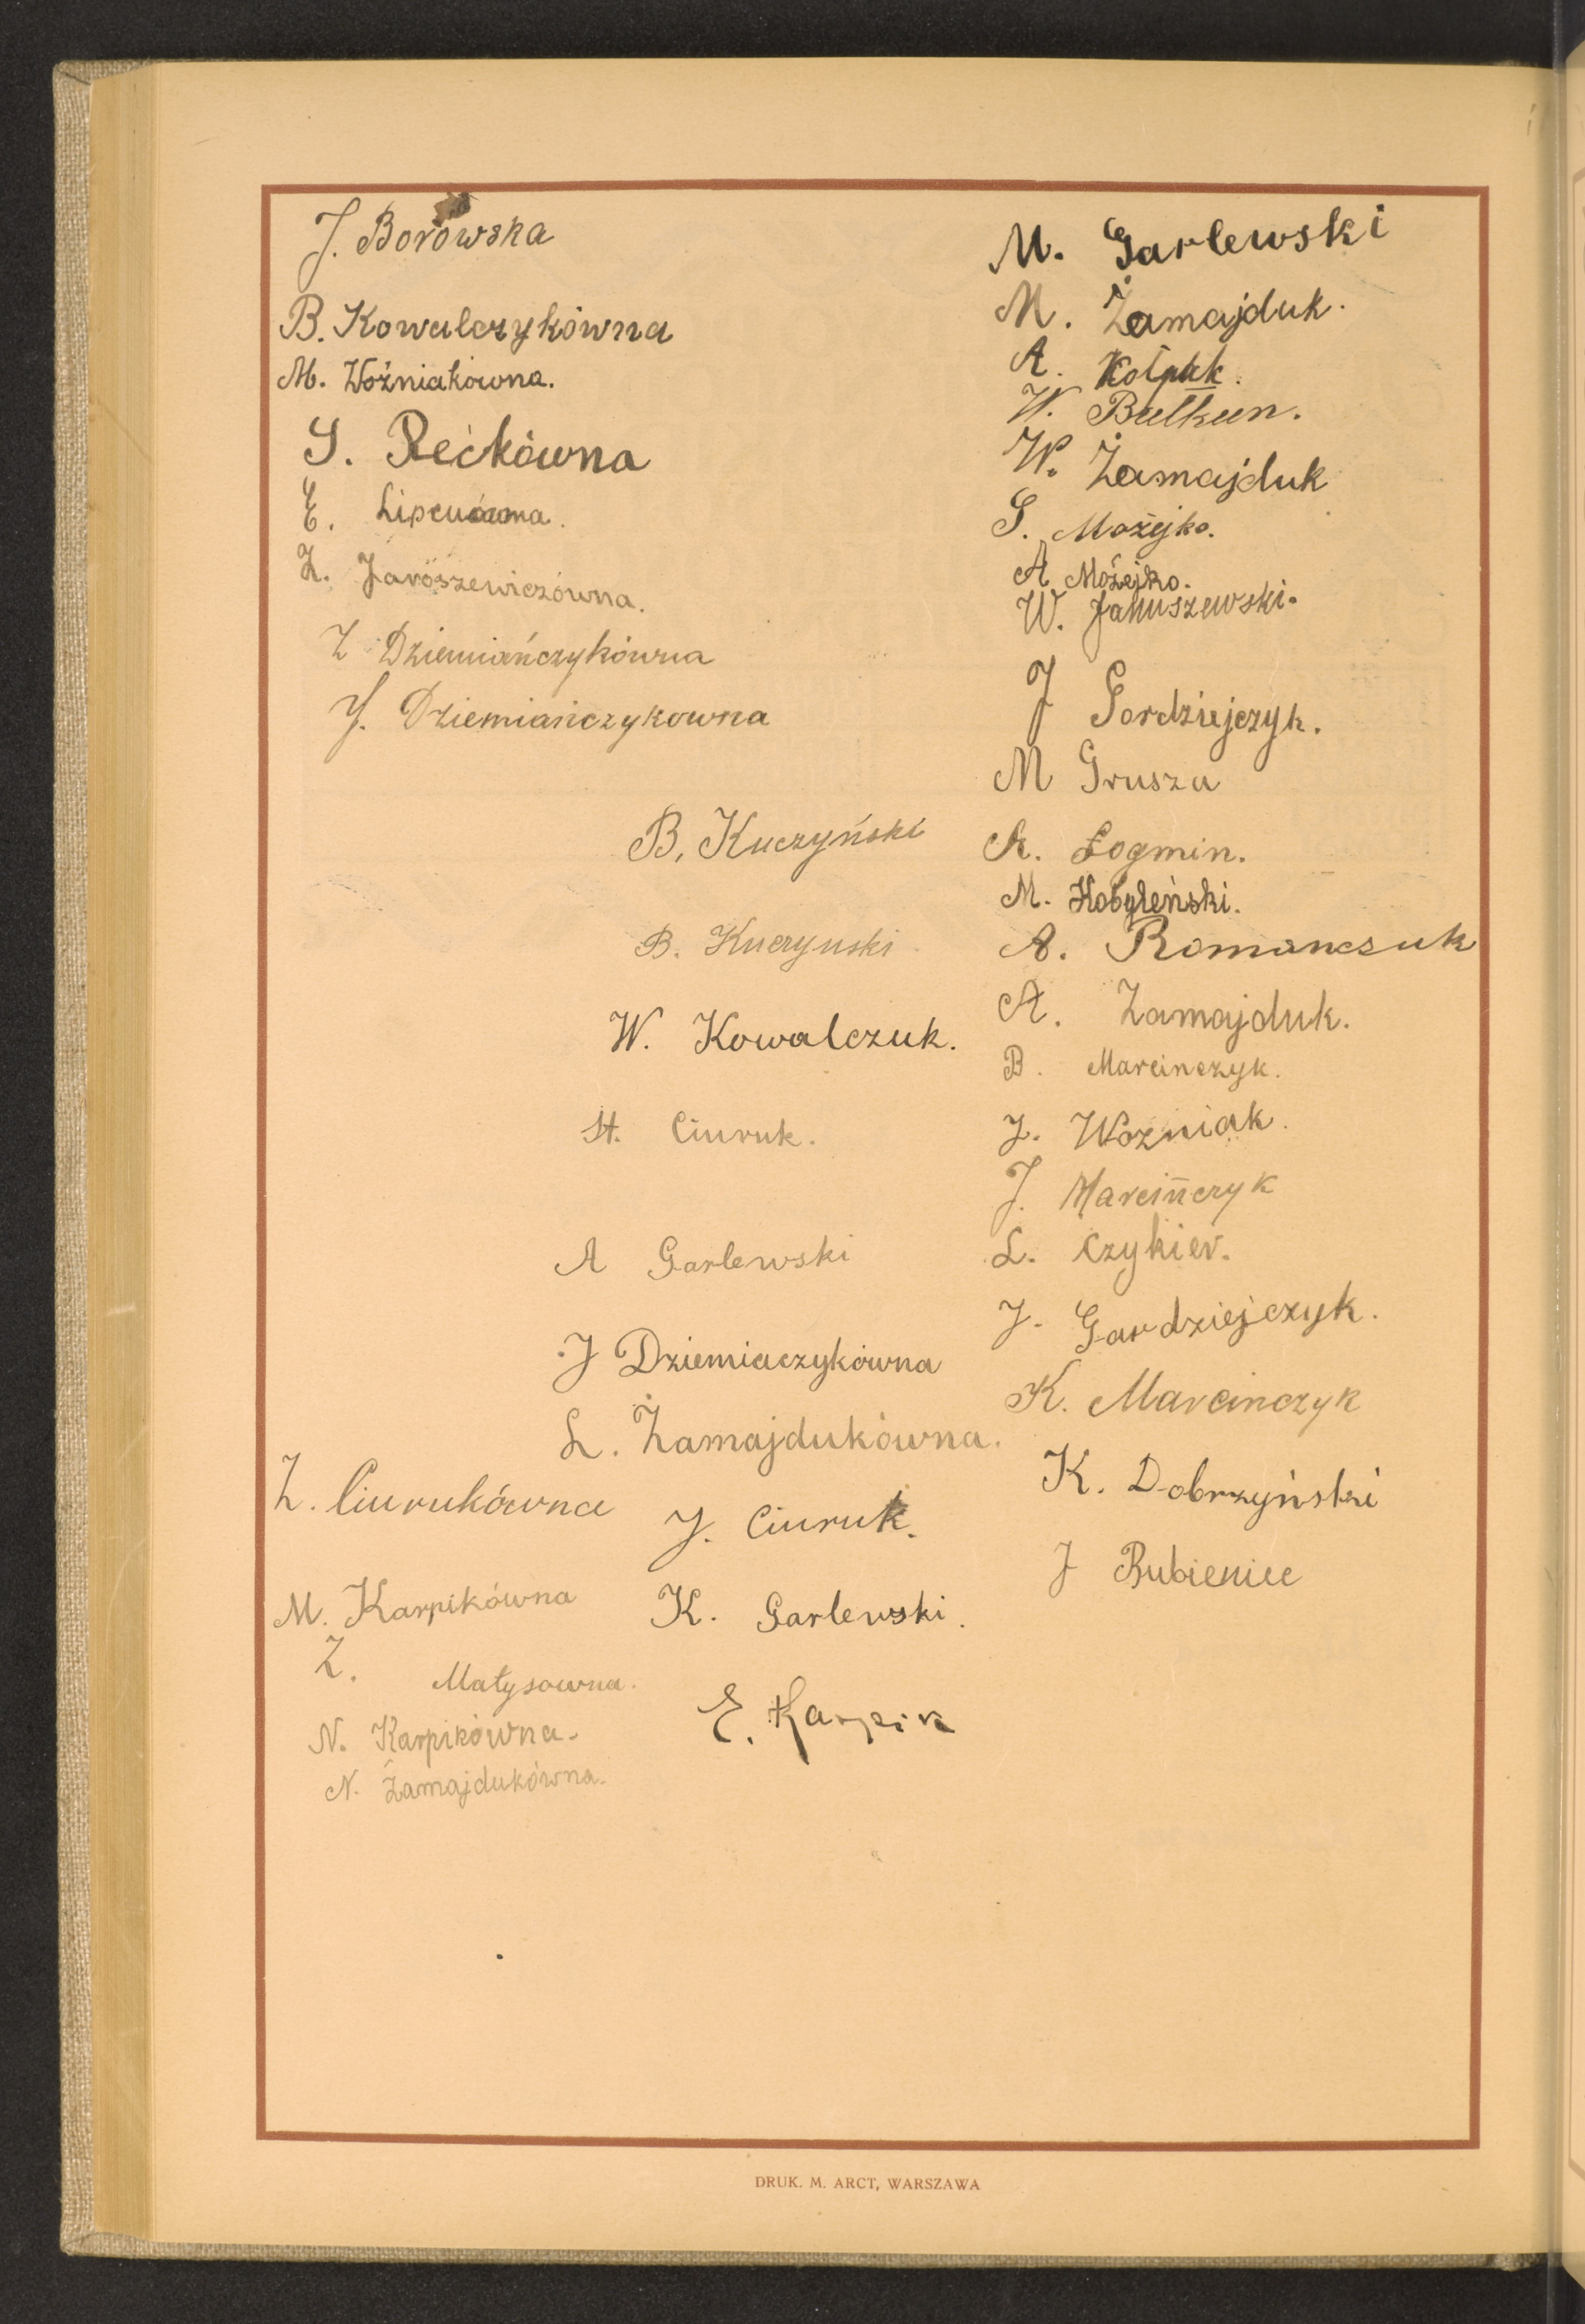 J. Borowska
B. Kowalczykówna
M. Woźniakówna.
S. Rećkówna
E. Lipcuówna.
Z. Jaroszewiczówna.
Z Dziemiańczykówna
J. Dziemiańczykowna
B. Kuczyński
B. Kuczynski
W. Kowalczuk.
St. Ciuruk.
A Garlewski
J Dziemiaczykówna
L. Żamajdukówna.
Z. Ciurukówna
J. Ciuruk.
M. Karpikówna
K. Garlewski.
Z. Matysowna.
E. Karpik
N. Karpikówna.
N. Żamajdukówna.
M. Garlewski
M. Żamajduk.
A. Kołpak.
W. Bułkun.
W. Żamajduk
S. Możejko.
A Możejko.
W. Januszewski.
J Gordziejczyk.
M Grusza
A. Łogmin.
M. Kobyleński.
A. Romanczuk
A. Zamajduk.
B. Marcinczyk.
J. Woźniak.
J. Marcińczyk
L. Czykier.
J. Gardziejczyk.
K. Marcinczyk
K. Dobrzyński
J Rubieniec
DRUK. M. ARCT, WARSZAWA